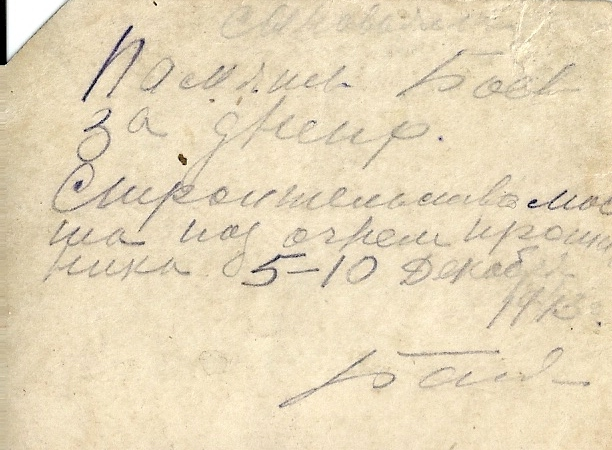 Память Боев
за Днепр.
Строительства мос
та под огнем против
ника 5-10 Декабря
1943.